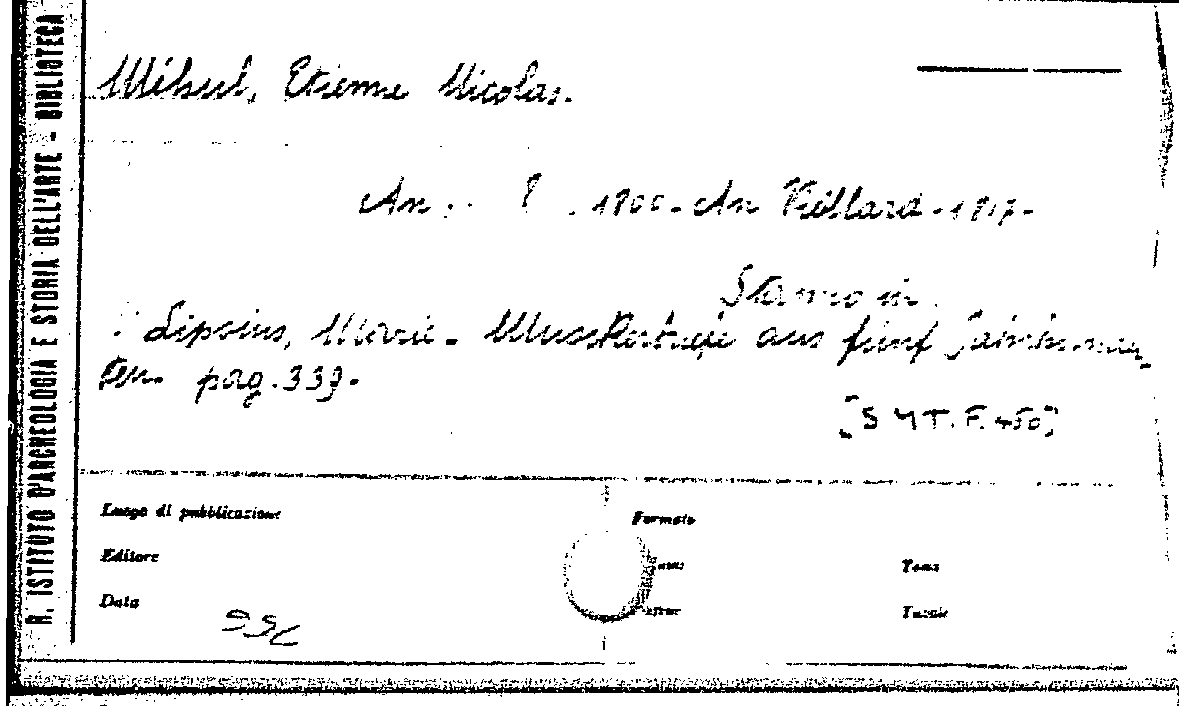 R. ISTITUTO D'ARCHEOLOGIA E STORIA DELL'ARTE - BIBLIOTECA
Méhul, Etienne Nicolas.
An 1800. An Veillard - 1817.
Stanno in
Lipsius, Marie - Musikerbriefe aus fünf Jahrhunder-
ten. pag. 339.
[S MT. F. 450]
Luogo di pubblicazione
Formato
Editore
Tomo
Data
Tavole